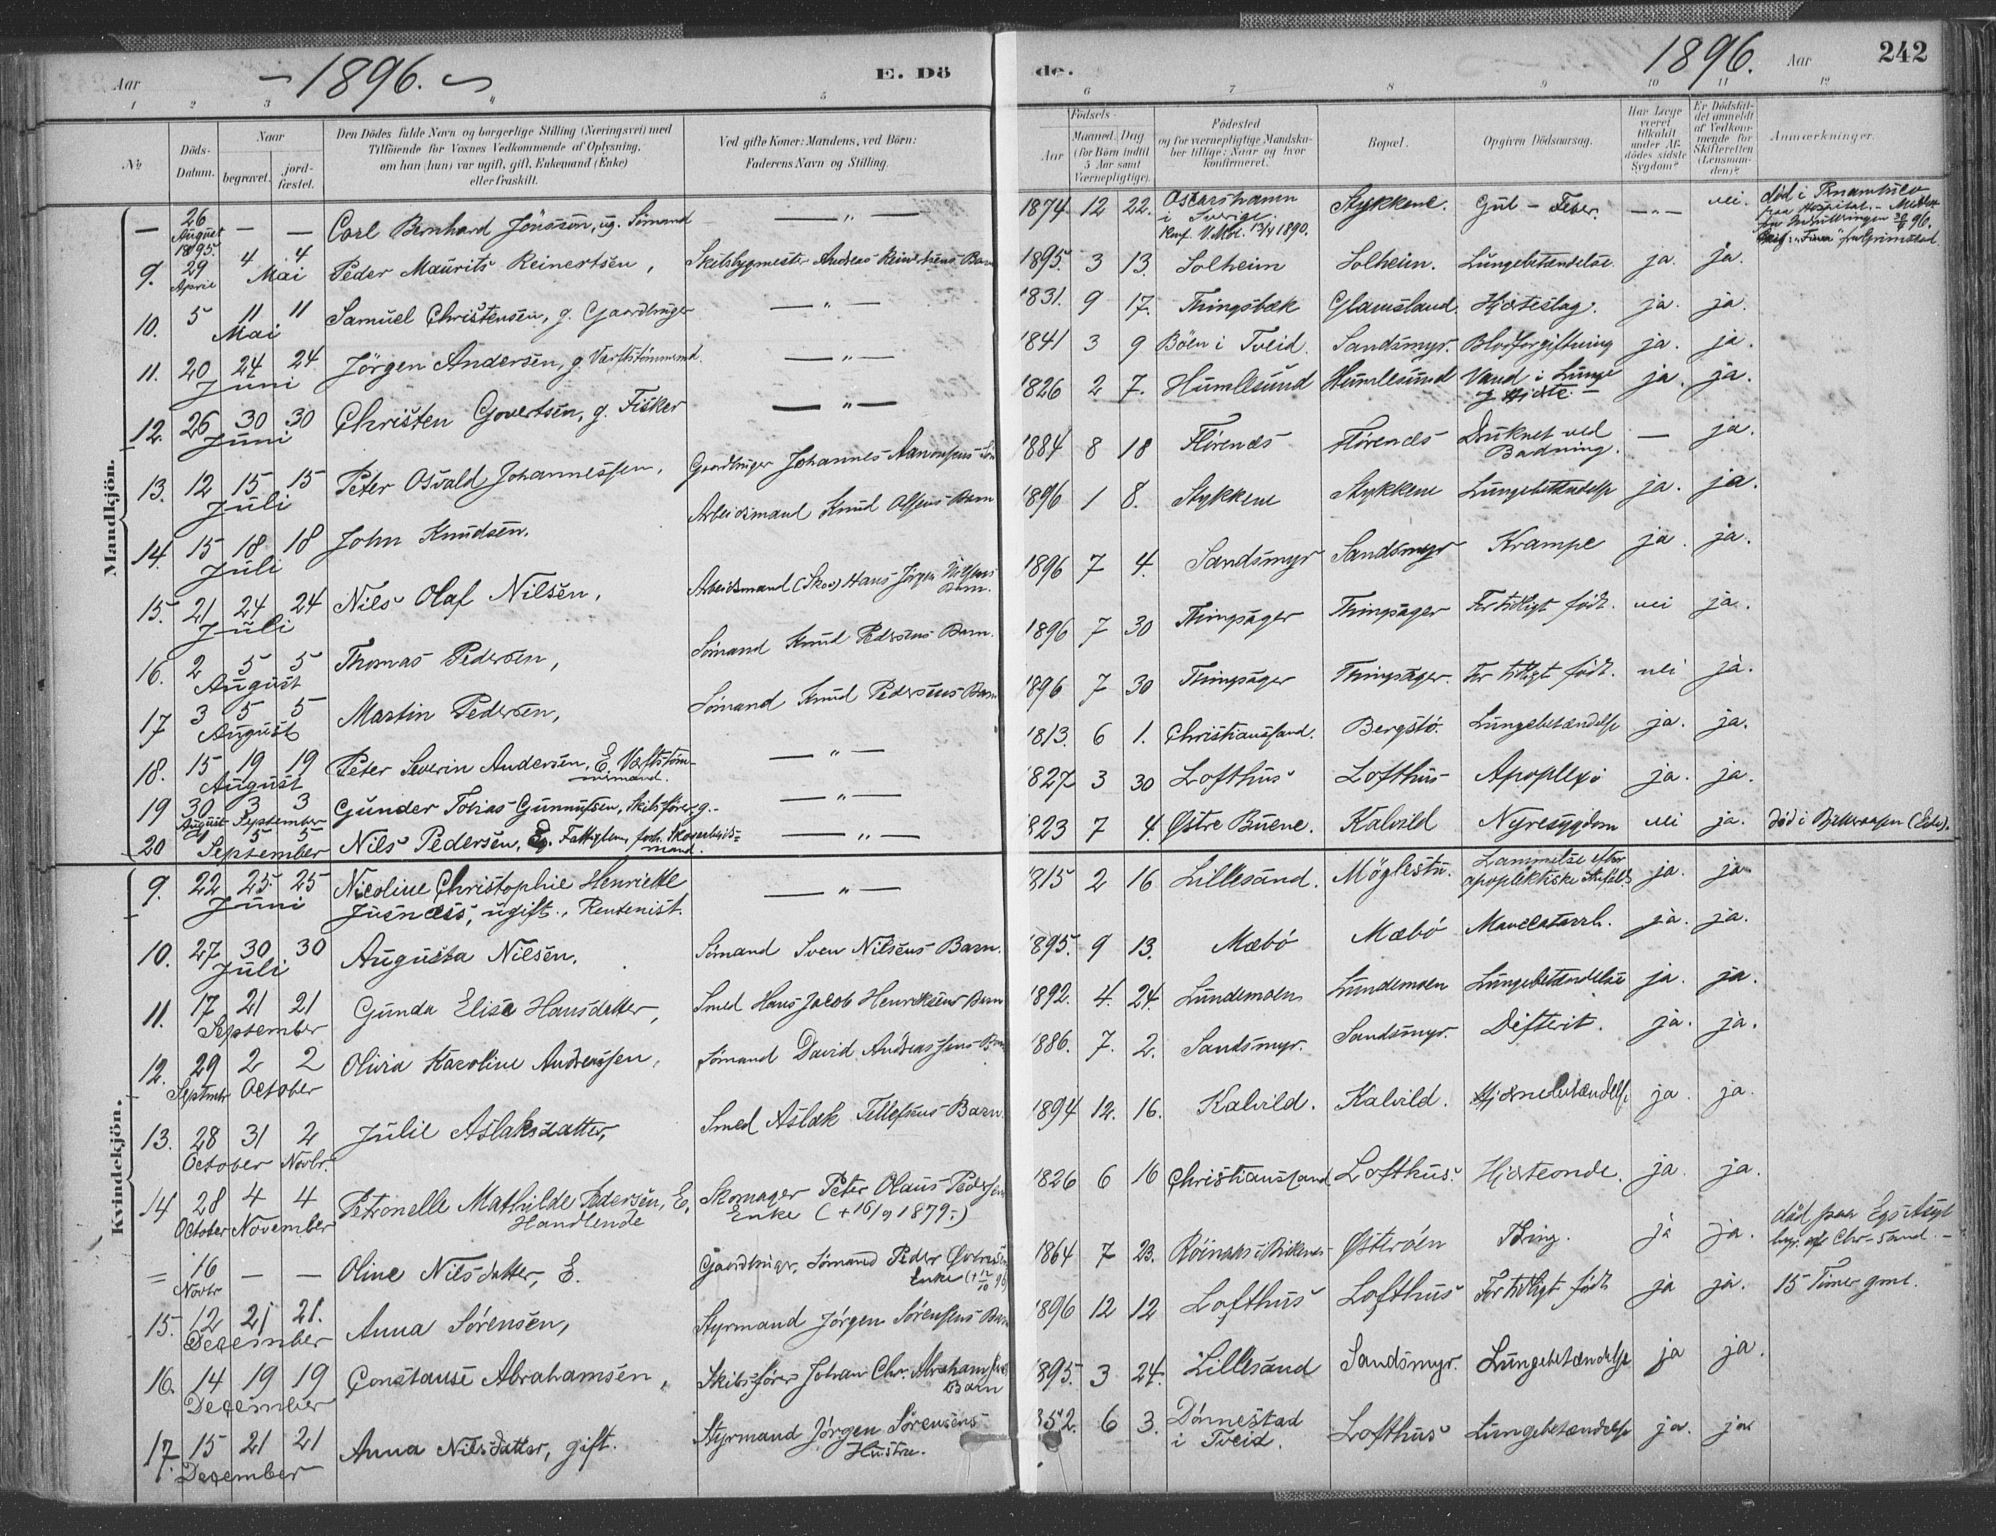 Aar
1896.
E. Dö
de.
1896.
Aar
242
1 2 3 4 5 6 7 8 9 10 11 12
№
Döds-Datum.
Naar
begravet.
jord-fæstet.
Den Dödes fulde Navn og borgerlige Stilling (Næringsvei) med
Tilföiende for Voxnes Vedkommende af Oplysning,
om han (hun) var ugift, gift, Enkemand (Enke)
eller fraskilt.
Ved gifte Koner: Mandens, ved Börn:
Faderens Navn og Stilling.
Födsels-
Aar
Maaned. Dag
(for Börn indtil
5 Aar samt
Værnepligtige).
Födested
og for værnepligtige Mandska-
ber tillige: Naar og hvor
konfirmeret.
Bopæl.
Opgiven Dödsaarsag.
Har Læge
været
tilkaldt
under Af-
dödes sidste
Sygdom?
Er Dödsfal-
det anmeldt
af Vedkom-
mende for
Skifteretten
(Lensman-
den)?
Anmærkninger.
Mandkjön.
— 26 August 1895. — — Carl Bernhard Jönsson, ug. Sömand — „ — 1874 12 22. Oscarshamn i Sverige. Konf. V.Mol. 13/4 1890. Stykkene. Gul-Feber. — „ — nei. död i Pernambuco paa Hospital.
9. 29 April 4 4 Mai Peder Maurits Reinertsen, Skibsbygmester Andreas Reinertsens Barn 1895. 3 13. Solheim Solheim. Lungebetændelse. ja. ja.
10. 5 11 11 Mai Samuel Christensen, g. Gaardbruger — „ — 1831. 9 17. Thingsbæk Glamsland. Hjerteslag. ja. ja.
11. 20 24 24 Juni Jörgen Andersen, g. Værftstömmermd. — „ — 1841 3 9 Böen i Tveid. Sandsmyr. Blodforgiftning ja. ja.
12. 26 30 30 Juni Christen Govertsen, g. Fisker — „ — 1826 2 7. Humlesund Humlesund Vand i Lunge og Hjerte. ja. ja.
13. 12 15 15 Juli Peter Osvald Johannessen, Gaardbruger Johannes Aanonsens Sön 1884 8 18 Flörenæs Flörenæs Druknet ved Badning. — ja.
14. 15 18 18 Juli John Knudsen. Arbeidsmand Knud Olsens Barn 1896 1 8. Stykkene Stykkene Lungebetændelse ja. ja.
15. 21 24 24 Juli Nils Olaf Nilsen, Arbeidsmand (Skov) Hans Jörgen Nilsens Barn. 1896 7 4. Sandsmyr Sandsmyr Krampe ja. ja.
16. 2 5 5 August Thomas Pedersen, Sömand Knud Pedersens Barn. 1896 7 30 Thingsager Thingsager For tidligt födt. nei ja.
17 3 5 5 August Martin Pedersen, Sömand Knud Pedersens Barn 1896 7 30 Thingsager Thingsager. For tidligt födt. nei ja.
18. 15 19 19 August Peter Severin Andersen, E. Værftstömmermand. — „ — 1813. 6 1. Christianssand. Bergstö. Lungebetændelse ja. ja.
19 30 August 3 3 September Gunder Tobias Gunnufsen, Skibsförer g. — „ — 1827 3 30 Lofthus Lofthus Apoplexi ja. ja.
20 5 5 September Nils Pedersen, Eg. Fattiglem, forh. Skogarbeidsmand. — „ — 1823 7 4. Östre Buene. Kalvild Nyresygdom nei ja.
Kvindekjön.
9. 22 25 25 Juni Nicoline Christophie Henrikke Jusnæss, ugift., Rentenist. — „ — 1815 2 16 Lillesand. Möglestu. Lammelse efter apoplektiske Anfald ja. ja
10. 27 30 30 Juli Augusta Nilsen. Sömand Sven Nilsens Barn. 1895. 9 13. Mæbö Mæbö Mavecatarrh. ja. ja.
11. 17 21 21 September Gunda Elise Hansdatter, Smed Hans Jacob Henriksens Barn 1892. 4. 24. Lundemoen Lundemoen Lungebetændelse ja. ja.
12. 29 Septmbr 2 2 October Olivia Karoline Andreassen, Sömand David Andreassens Barn 1886. 7. 2. Sandsmyr. Sandsmyr. Difterit. ja. ja.
13. 28 31 October 2 Novbr. Julie Aslaksdatter, Smed Aslak Tellefsens Barn. 1894 12. 16. Kalvild. Kalvild. Hjernebetændelse ja ja.
14 28 October 4 4 November Petronelle Mathilde Pedersen, E. Handlende Skomager Peter Olaus Pedersens Enke (+ 16/9 1879.) 1826 6 16 Christianssand Lofthus. Hjerteonde. ja. ja.
= 16 Novbr — — Oline Nilsdatter, E. Gaardbruger, Sömand Peder Enke 1864 7 23. Österöen Tæring. ja ja. död paa Egs Asyl
15. 12 21 21. December Anna Sörensen, Styrmand Jörgen Sörensens Barn 1896 12 12 Lofthus Lofthus For tidligt födt ja ja. 15 Timer gml.
16. 14 19 19 December Constanse Abrahamsen, Skibsförer Johan Chr. Abrahamsens Barn 1895. 3 24. Lillesand Sandsmyr. Lungebetændelse ja ja.
17. 15 21 21 December Anna Nilsdatter, gift. Styrmand Jörgen Sörensens Hustru. 1852. 6 3. Dönnestad i Tveid. Lofthus Lungebetændelse ja. ja